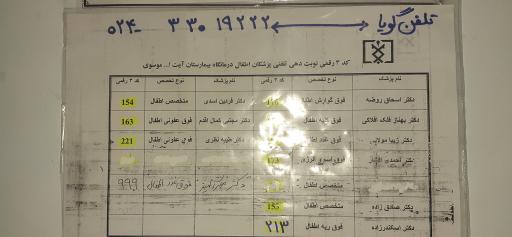 تلفن گویا ۳۳۰۱۹۲۲۲ ۰۲۴-
کد ۳ رقمی نوبت دهی تلفنی پزشکان اطفال درمانگاه بیمارستان آیت ا... موسوی
نام پزشک نوع تخصص کد ۳ رقمی نام پزشک نوع تخصص کد ۳ رقمی
دکتر اسحاق روضه فوق گوارش اطفال دکتر فردین اسدی متخصص اطفال 154
دکتر بهناز فلک افلاکی فوق کلیه اطفال دکتر مجتبی کمال اقدم فوق عفونی اطفال 163
دکتر زیبا فوق غدد دکتر طیبه نظری فوق عفونی اطفال 221
دکتر احمدی افشار فوق آسم و آلرژی 173
متخصص اطفال دکتر فوق غدد اطفال 999
دکتر صادق زاده متخصص اطفال 155
دکتر اسکندرزاده فوق ریه اطفال ۲۱۳